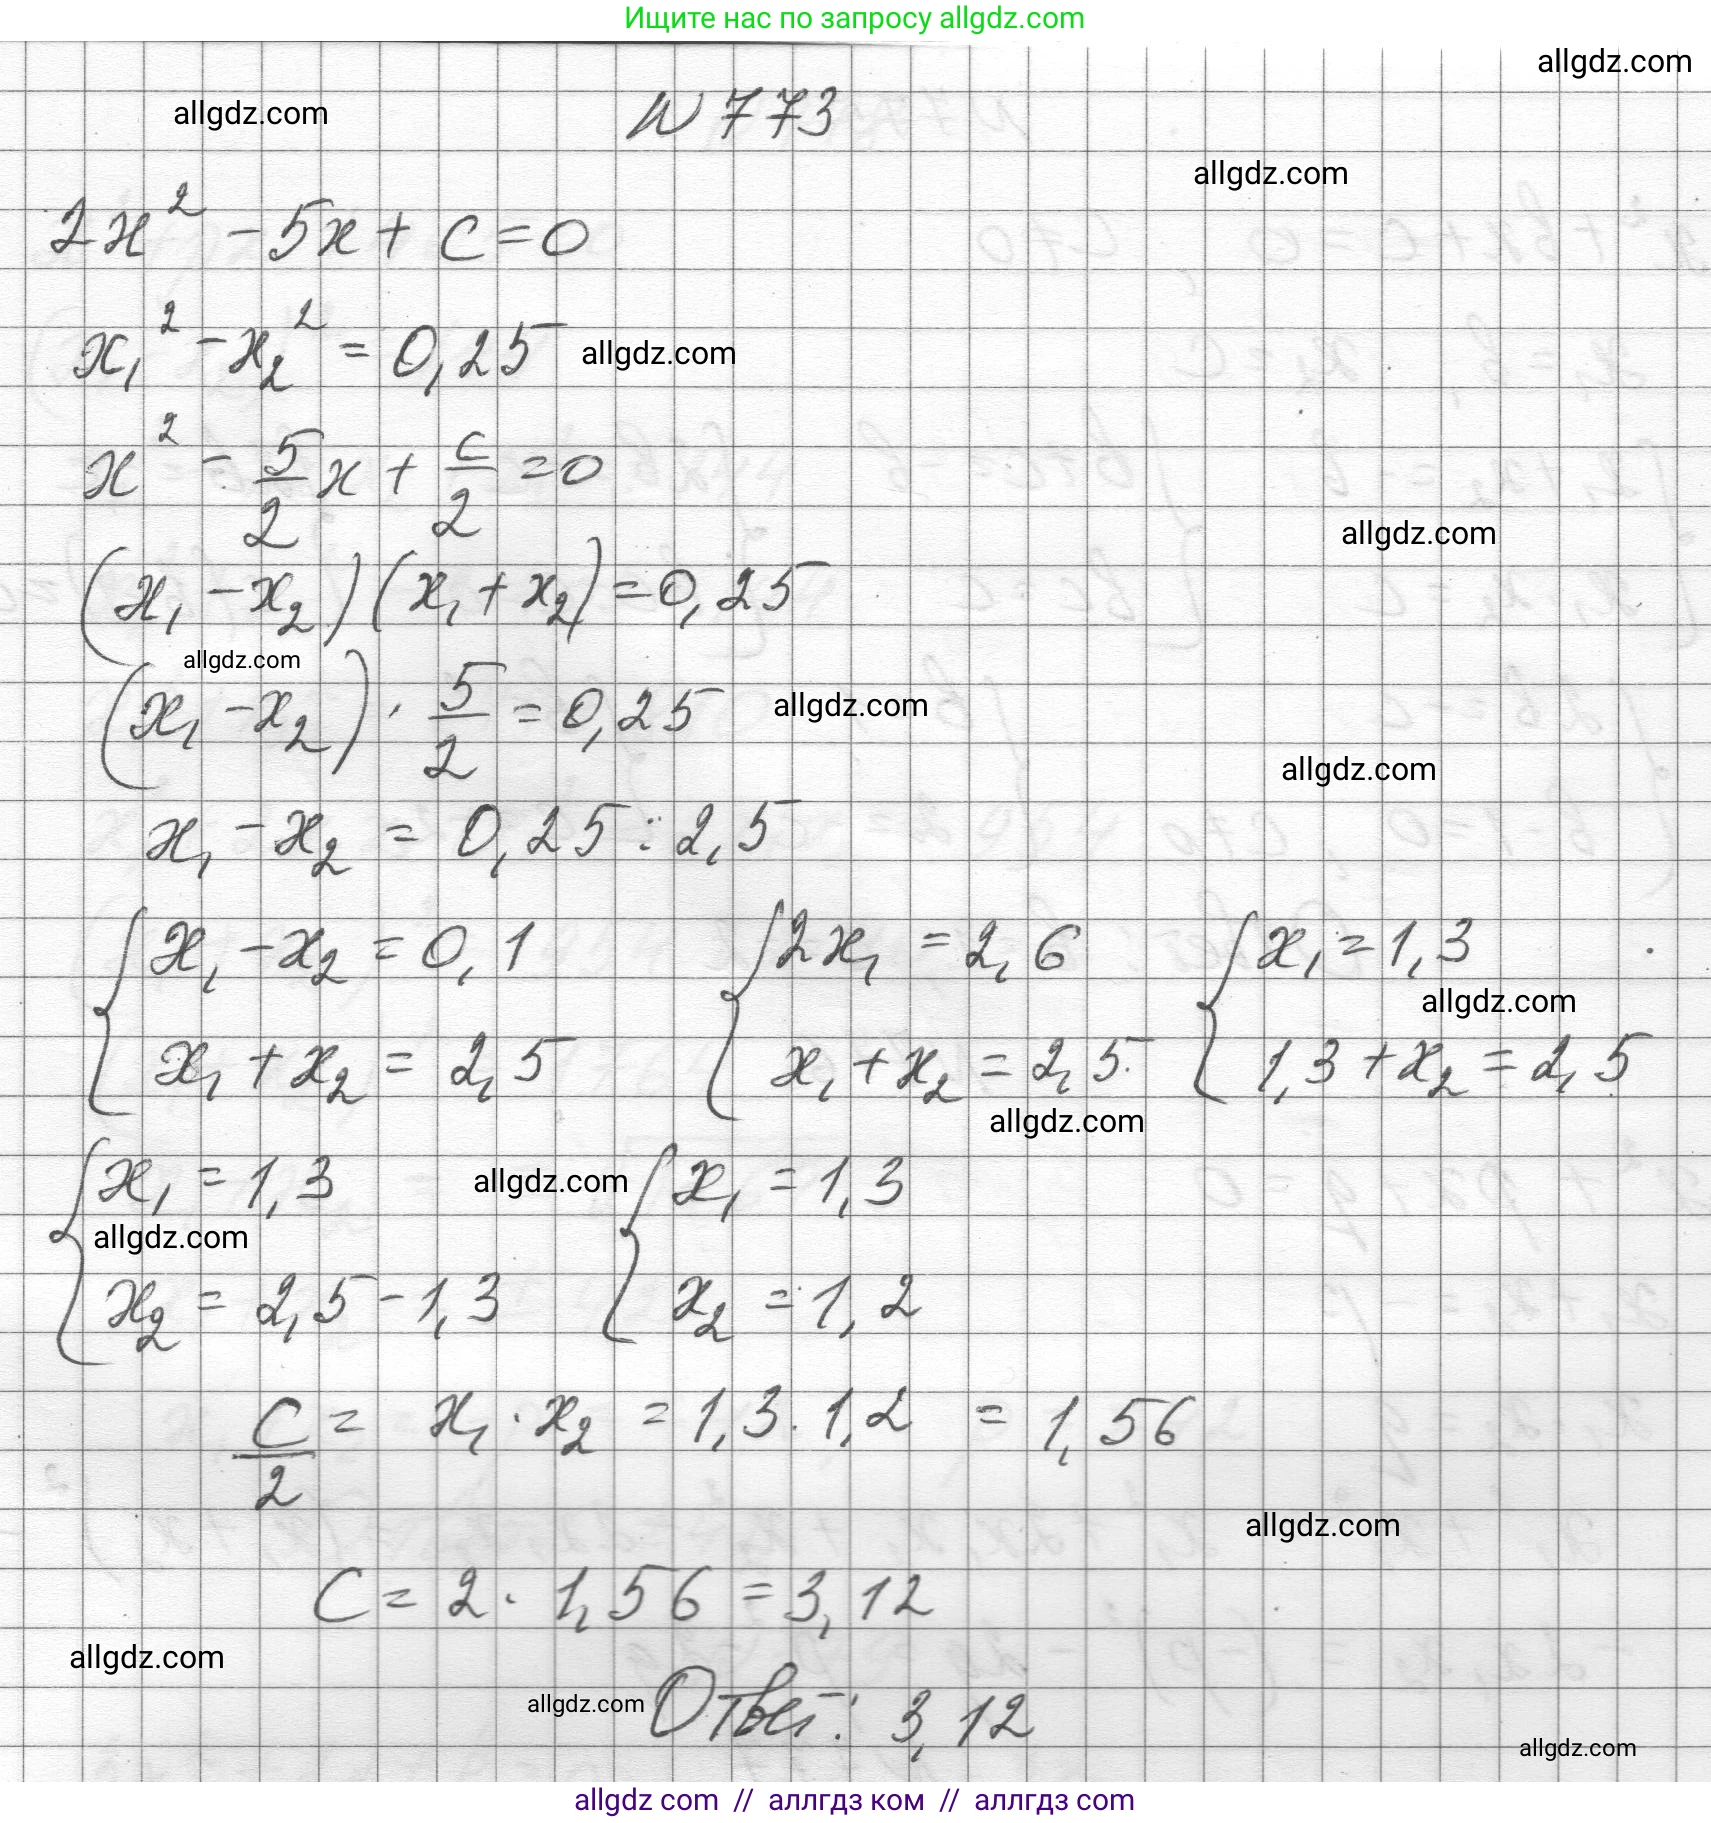 Ищите нас по запросу allgdz.com
allgdz.com
allgdz.com
N 773
allgdz.com
2x² - 5x + c = 0
x₁² - x₂² = 0,25
allgdz.com
x² - 5/2 x + c/2 = 0
allgdz.com
(x₁ - x₂)(x₁ + x₂) = 0,25
allgdz.com
(x₁ - x₂) · 5/2 = 0,25
allgdz.com
allgdz.com
x₁ - x₂ = 0,25 : 2,5
{ x₁ - x₂ = 0,1 { 2x₁ = 2,6 { x₁ = 1,3
allgdz.com
x₁ + x₂ = 2,5 x₁ + x₂ = 2,5 1,3 + x₂ = 2,5
allgdz.com
{ x₁ = 1,3 allgdz.com { x₁ = 1,3
allgdz.com
x₂ = 2,5 - 1,3 x₂ = 1,2
c/2 = x₁ · x₂ = 1,3 · 1,2 = 1,56
allgdz.com
c = 2 · 1,56 = 3,12
allgdz.com
allgdz.com Ответ: 3,12
allgdz.com
allgdz com // аллгдз ком // аллгдз com